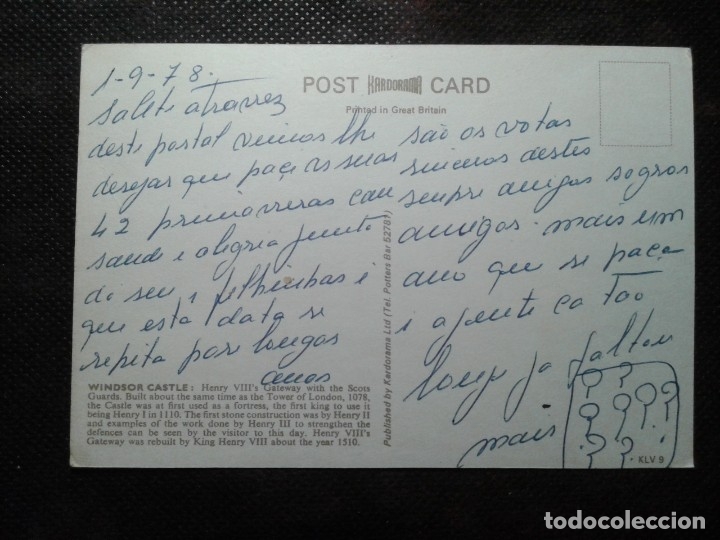 POST KARDORAMA CARD
Printed in Great Britain
1-9-78.
Salete atravrez
deste postal vimos lhe
desejar que paçe as suas
42 primavreras com
saude e alegria junto
do seu e filhinhas e
que esta data se
repita por longos
anos
são os votos
sinceros destes
sempre amigos sogros
amigos mais um
ano que se paça
e agente ca tão
longe ja faltou
mais
WINDSOR CASTLE: Henry VIII's Gateway with the Scots
Guards. Built about the same time as the Tower of London, 1078,
the Castle was at first used as a fortress, the first king to use it
being Henry I in 1110. The first stone construction was by Henry II
and examples of the work done by Henry III to strengthen the
defences can be seen by the visitor to this day. Henry VIII's
Gateway was rebuilt by King Henry VIII about the year 1510.
Published by Kardorama Ltd (Tel. Potters Bar 52781)
• KLV 9
todocoleccion
todocoleccion.net